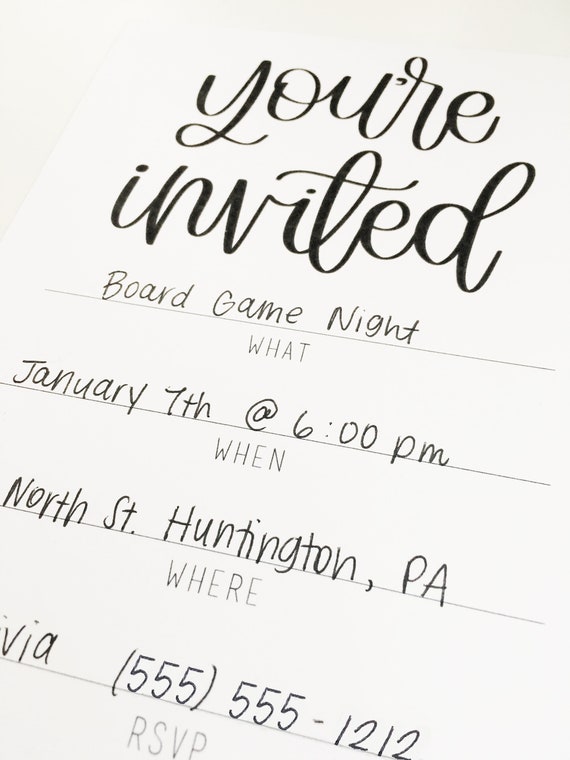 you're
invited
Board Game Night
WHAT
January 7th @ 6:00 pm
WHEN
North St. Huntington, PA
WHERE
(555) 555-1212
RSVP